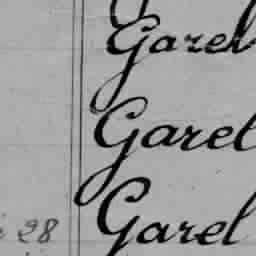 Garel
Garel
28 Garel